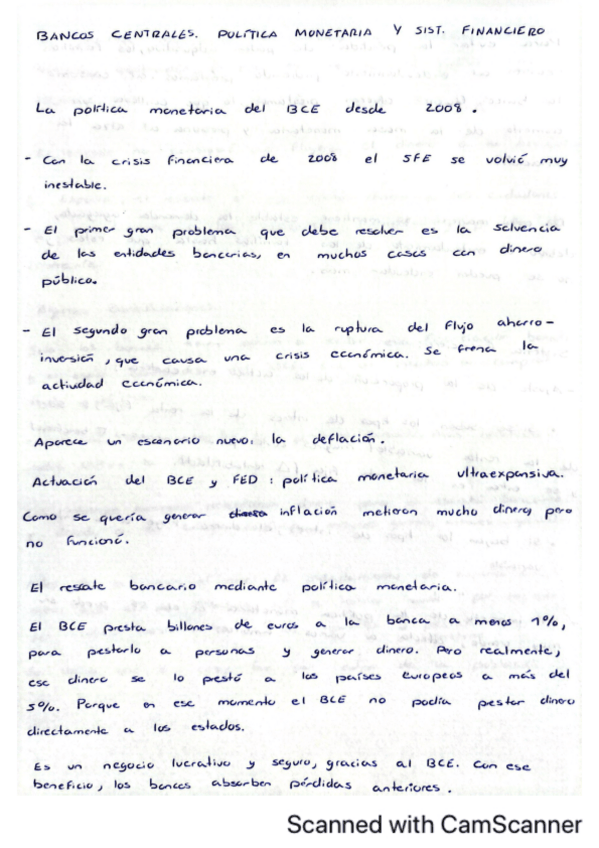 BANCOS CENTRALES. POLÍTICA MONETARIA Y SIST. FINANCIERO
La política monetaria del BCE desde 2008.
- Con la crisis financiera de 2008 el SFE se volvió muy
inestable.
- El primer gran problema que debe resolver es la solvencia
de las entidades bancarias, en muchos casos con dinero
público.
- El segundo gran problema es la ruptura del flujo ahorro-
inversión, que causa una crisis económica. Se frena la
actividad económica.
Aparece un escenario nuevo: la deflación.
Actuación del BCE y FED: política monetaria ultraexpansiva.
Como se quería generar inflación metieron mucho dinero, pero
no funcionó.
El rescate bancario mediante política monetaria.
El BCE presta billones de euros a la banca a menos 1%,
para pestarlo a personas y generar dinero. Pero realmente,
ese dinero se lo pestó a los países europeos a más del
5%. Porque en ese momento el BCE no podía pestar dinero
directamente a los estados.
Es un negocio lucrativo y seguro, gracias al BCE. Con ese
beneficio, los bancos absorben pérdidas anteriores.
Scanned with CamScanner